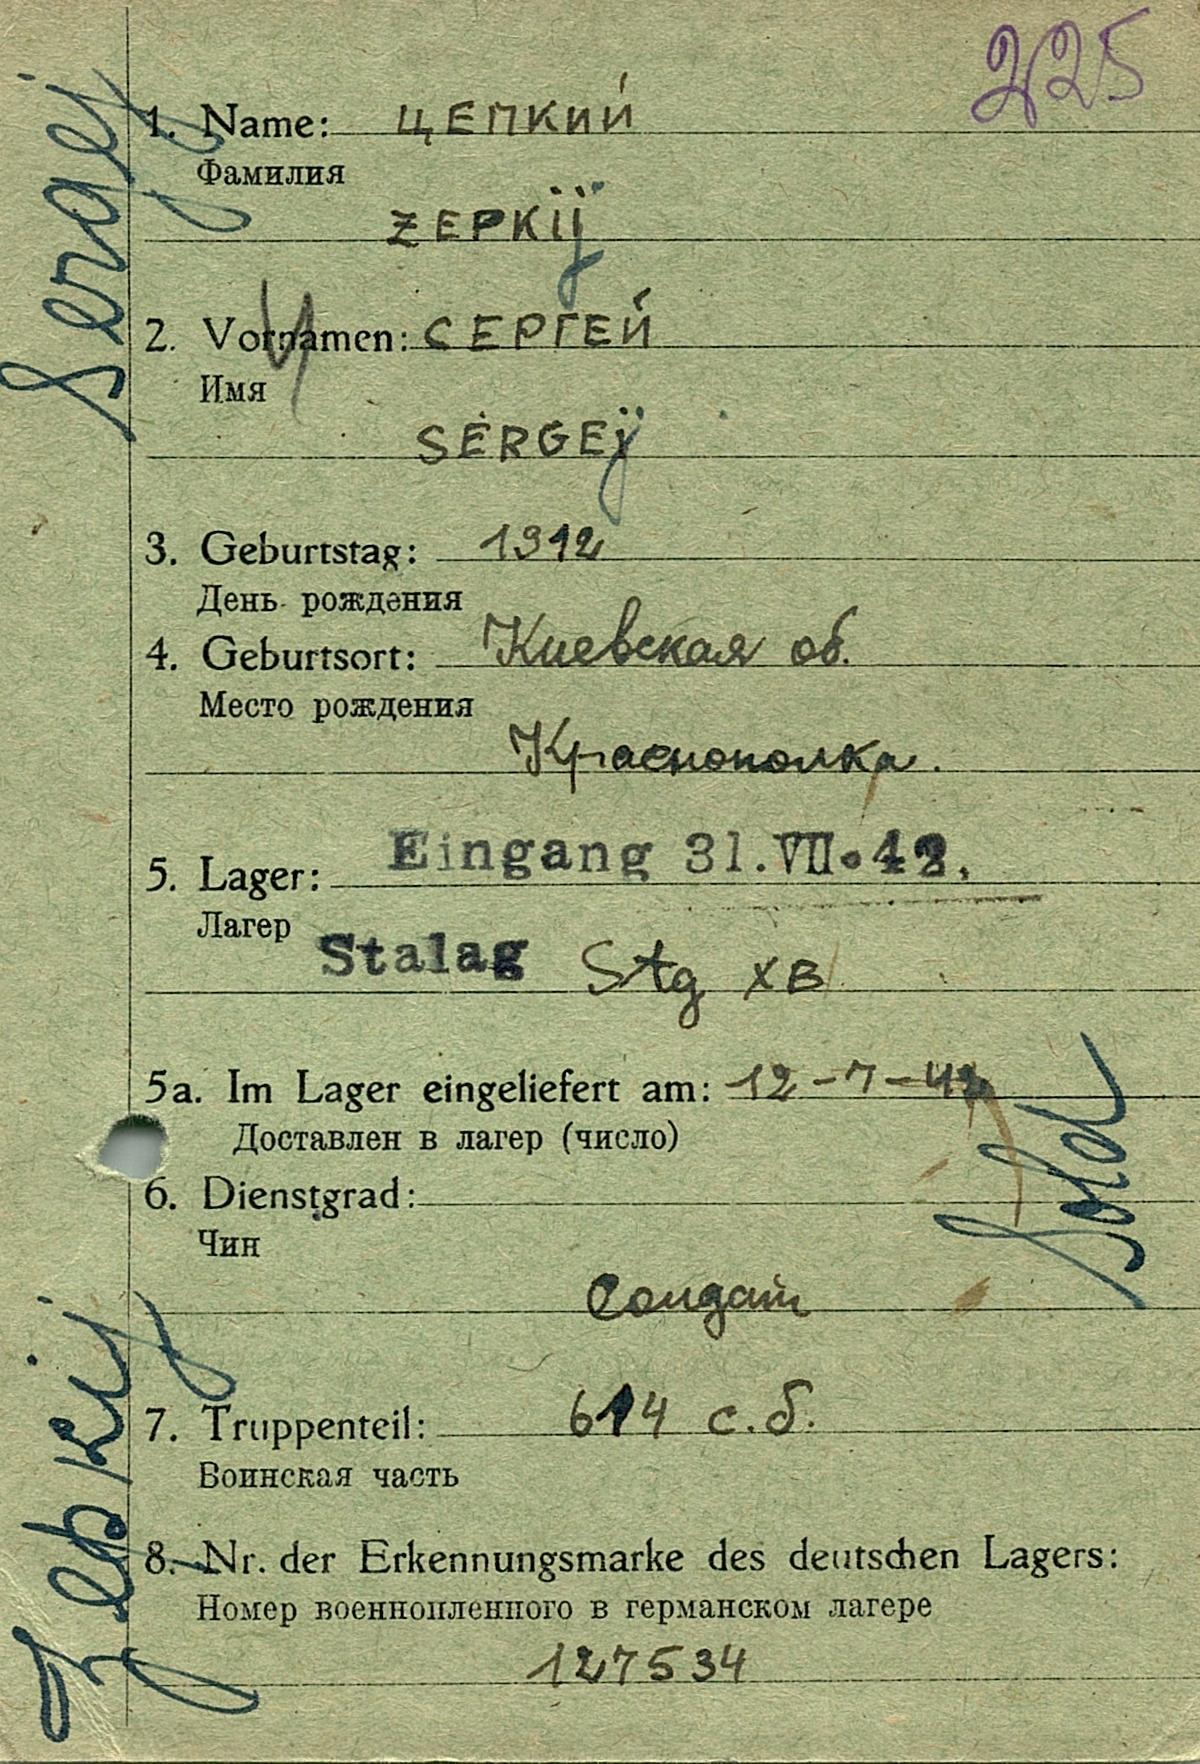 225
Sergej
1. Name: ЦЕПКИЙ
Фамилия
ZEPKIJ
2. Vornamen: СЕРГЕЙ
Имя
SERGEJ
3. Geburtstag: 1912
День рождения
4. Geburtsort: Киевская об.
Место рождения
Краснополка.
5. Lager: Eingang 31.VII.42.
Лагер
Stalag Stg XB
5a. Im Lager eingeliefert am: 12-7-42
Доставлен в лагер (число)
Sold
6. Dienstgrad:
Чин
Солдат
Zepkij
7. Truppenteil: 614 с.б.
Воинская часть
8. Nr. der Erkennungsmarke des deutschen Lagers:
Номер военнопленного в германском лагере
127534